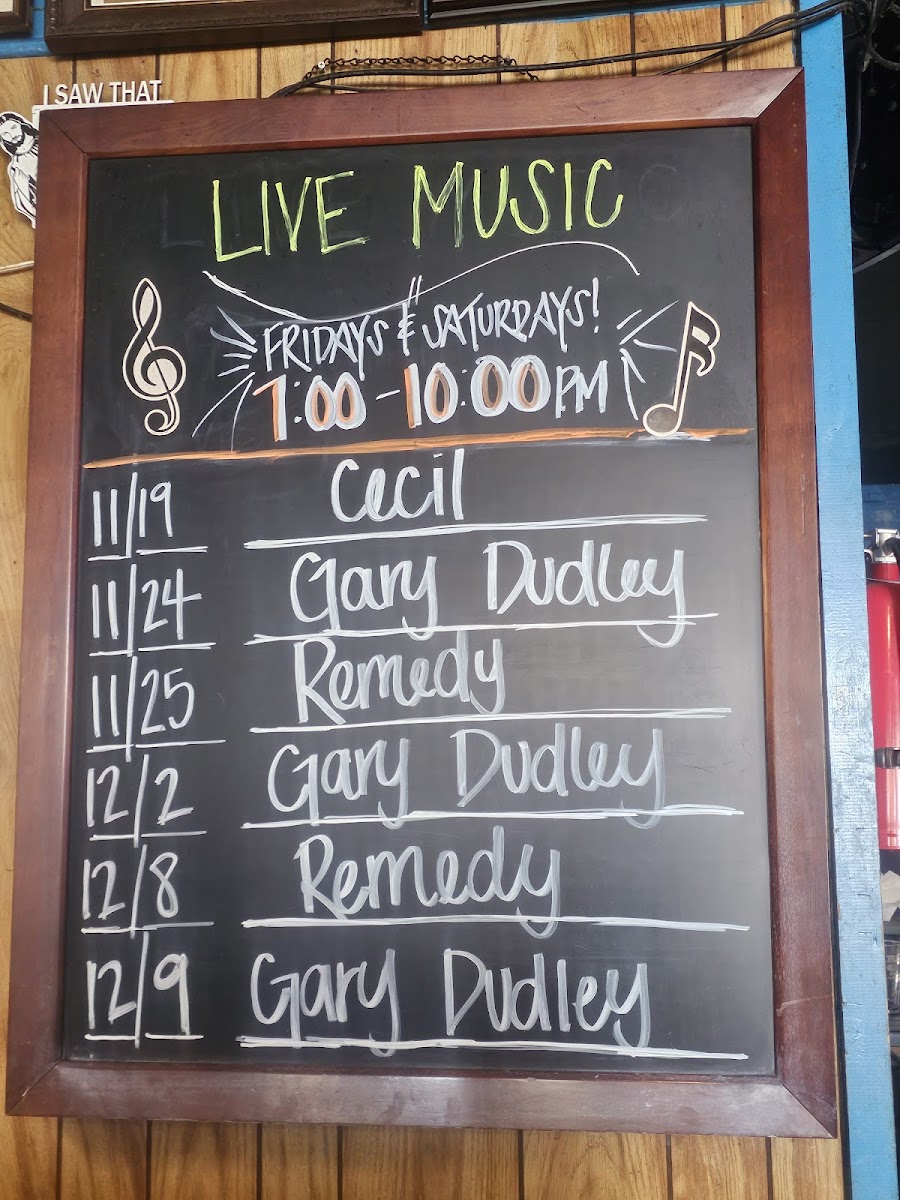 I SAW THAT
LIVE MUSIC
FRIDAYS & SATURDAYS!
7:00-10:00PM
11/19 Cecil
11/24 Gary Dudley
11/25 Remedy
12/2 Gary Dudley
12/8 Remedy
12/9 Gary Dudley